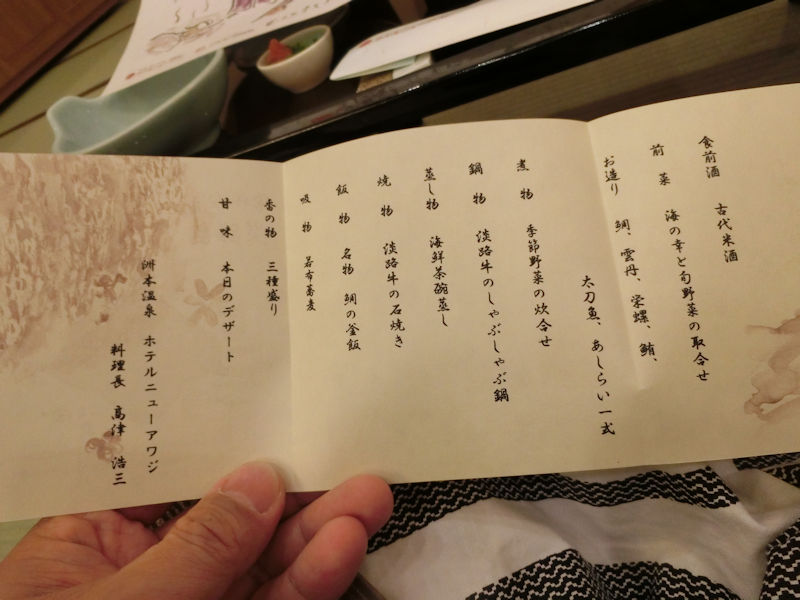 食前酒 古代米酒
前菜 海の幸と旬野菜の取合せ
お造り 鯛、雲丹、栄螺、鮪、
太刀魚、あしらい一式
煮物 季節野菜の炊合せ
鍋物 淡路牛のしゃぶしゃぶ鍋
蒸し物 海鮮茶碗蒸し
焼物 淡路牛の石焼き
飯物 名物 鯛の釜飯
吸物 若布蕎麦
香の物 三種盛り
甘味 本日のデザート
洲本温泉 ホテルニューアワジ
料理長 高津 浩三